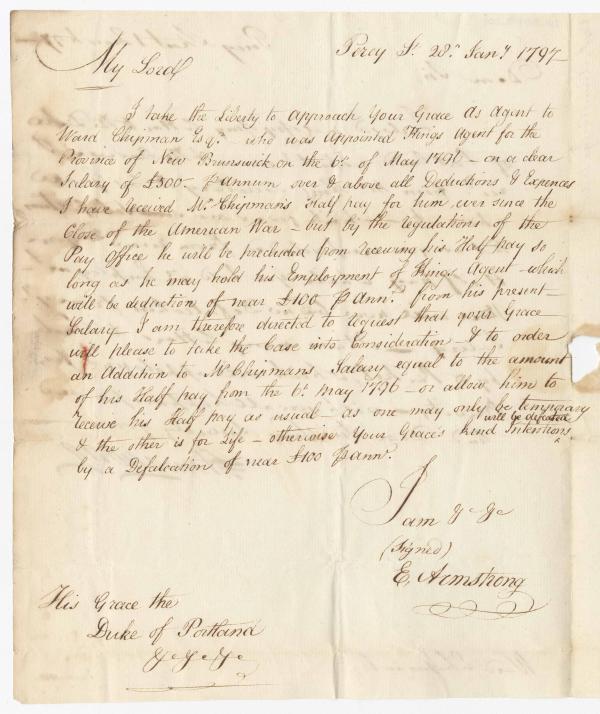 Percy St. 28th Jany 1797
My Lord
I take the Liberty to Approach Your Grace as Agent to
Ward Chipman Esqr. who was Appointed Kings Agent for the
Province of New Brunswick on the 6th of May 1796 - on a clear
Salary of £300. P annum over & above all Deductions & Expences
I have received Mr. Chipman's Half pay for him ever since the
Close of the American War - but by the regulations of the
Pay Office he will be precluded from receiving his Half pay so
long as he may hold his Employment of Kings Agent - which
will be deduction of near £100 P Ann. from his present -
Salary - I am therefore directed to request that your Grace
will please to take the Case into Consideration - & to order
an Addition to Mr Chipmans Salary equal to the amount
of his Half pay from the 6th May 1796 - or allow him to
receive his Half pay as usual - as one may only be temporary
will be defeated
& the other is for Life - otherwise Your Grace's kind Intentions ^
by a Defalcation of near £100 P ann.
I am &c &c
(Signed)
E. Armstrong
His Grace the
Duke of Portland
&c &c &c